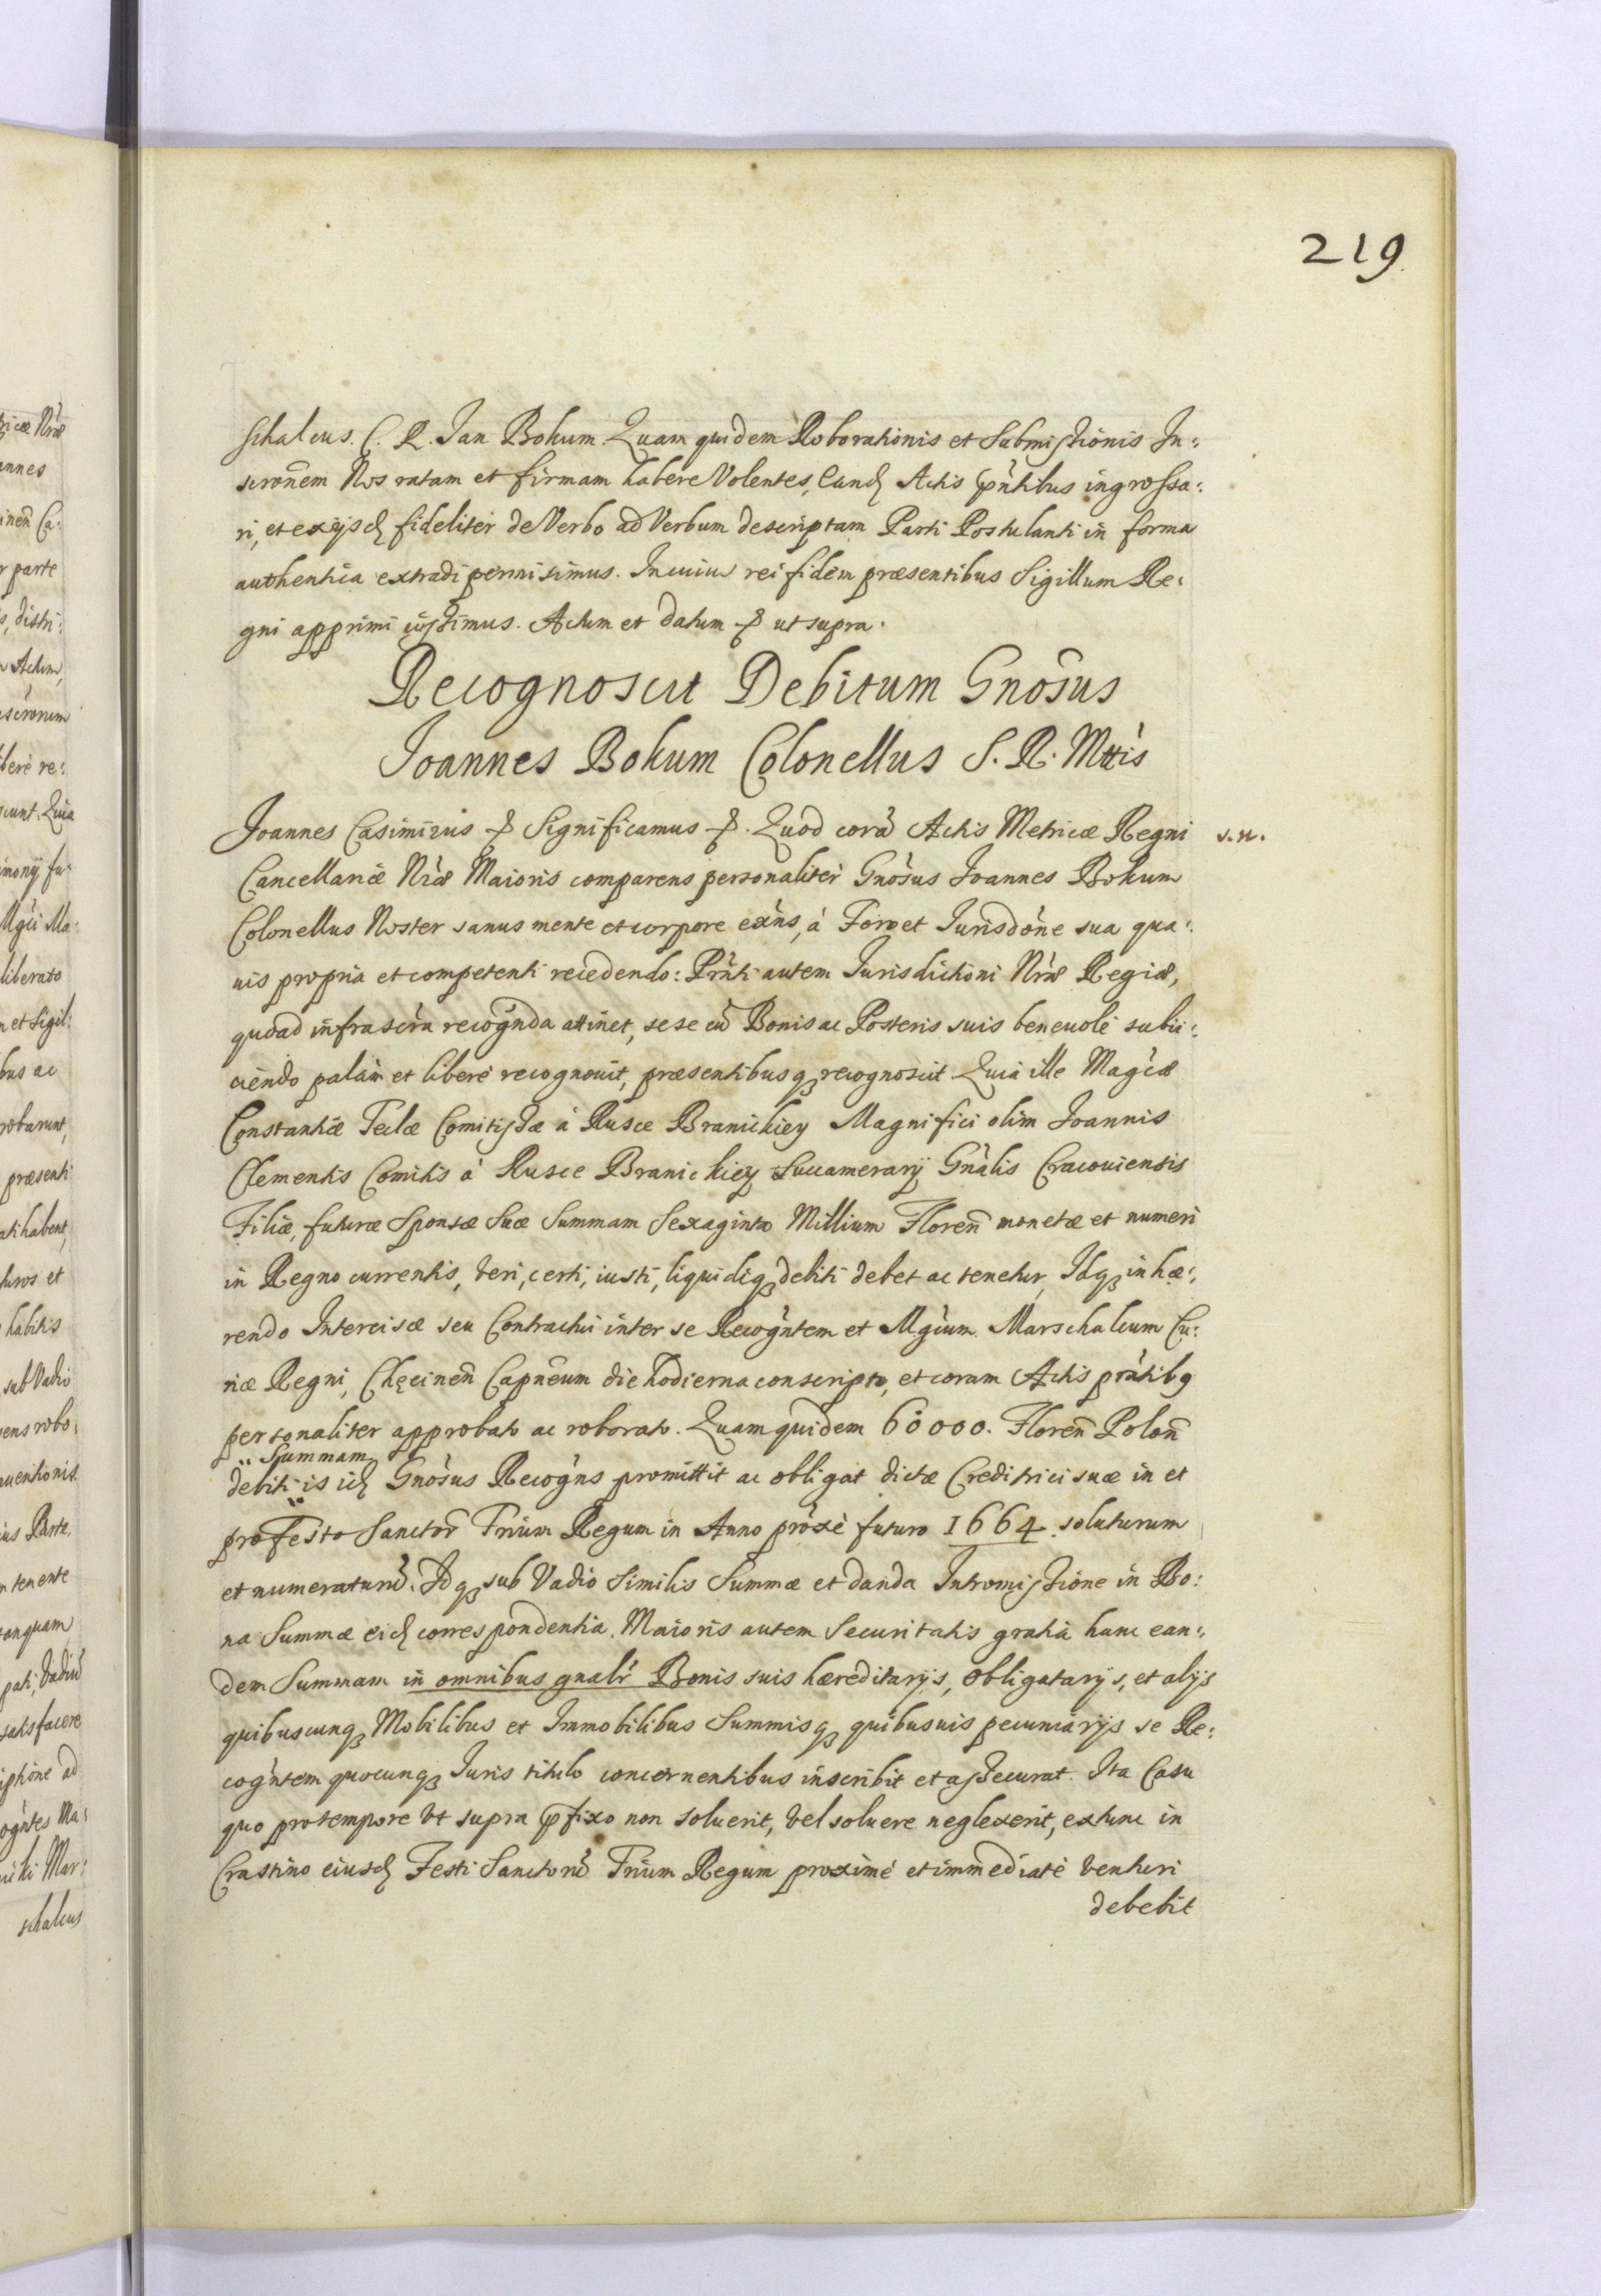 219.
schalcus. C. R. Jan Bokum. Quam quidem Roborationis et Submissionis In:
scronem Nos ratam et firmam habere Volentes, Eand Actis pñtibus ingrossa:
ri, et ex ijsd fideliter de Verbo ad Verbum descriptam Parti Postulanti in forma
authentica extradi permisimus. In cuius rei fidem præsentibus Sigillum Re:
gni apprimi iussimus. Actum et datum & ut supra.
Recognoscit Debitum Gnosus
Joannes Bokum Colonellus S. R. Mttis
Joannes Casimirus & Significamus &. Quod corã Actis Metricæ Regni
s. n.
Cancellariæ Nræ Maioris comparens personaliter Gnosus Joannes Bokum
Colonellus Noster sanus mente et corpore exñs, à Foro et Jurisdõne sua qua:
uis propria et competenti recedendo: Prñti autem Jurisdictioni Nræ Regiæ,
quoad infrascra recognda attinet, sese cũ Bonis ac Posteris suis beneuolè subii:
ciendo palàm et liberè recognouit, præsentibusq recognoscit. Quia ille Magcæ
Constantiæ Teclæ Comitissæ à Rusce Branickiey Magnifici olim Joannis
Clementis Comitis à Rusce Branickiey Succamerarij Gnalis Cracouiensis
Filiæ, futuræ Sponsæ Suæ Summam Sexaginta Millium Floren monetæ et numeri
in Regno currentis, veri, certi, iusti, liquidiq debiti debet ac tenetur, Idq inhæ:
rendo Intercisæ seu Contractui inter se Recogntem et Mgcum. Marschalcum Cu:
riæ Regni, Chęcinen Capneum die hodierna conscripto, et coram Actis prñtibq
personaliter approbato ac roborato. Quam quidem 60000. Floren Polon
Summam
debiti is id Gnosus Recogns promittit ac obligat dictæ Creditrici suæ in et
pro Festo Sanctor Trium Regum in Anno proxè futuro 1664. soluturum
et numeraturũ. Idq sub Vadio similis Summæ et danda Intromissione in Bo:
na Summæ eid correspondentia. Maioris autem Securitatis gratia hanc ean:
dem Summam in omnibus gnalr Bonis suis hæreditarijs, obligatarijs, et alijs
quibuscunq Mobilibus et Immobilibus Summisq quibusuis pecuniarijs se Re:
cogntem quocunq Juris titulo concernentibus inscribit et assecurat. Ita Casu
quo pro tempore vt supra pfixo non soluerit, vel soluere neglexerit, extunc in
Crastino eiusd Festi Sanctorũ Trium Regum proximè et immediatè venturi
debebit